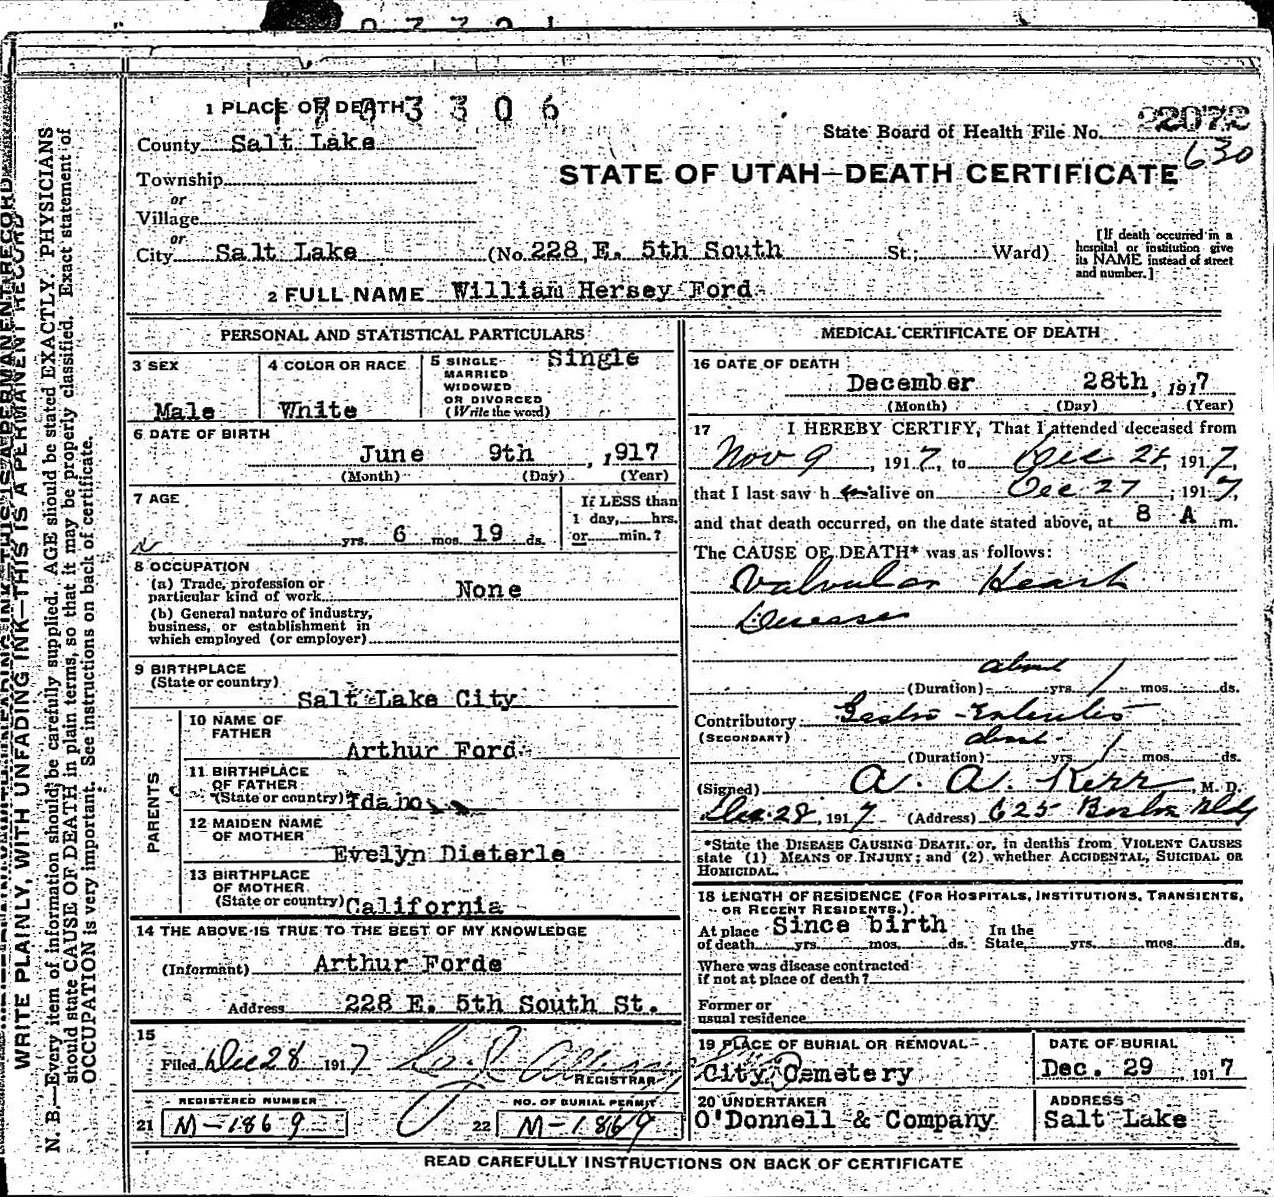 1 PLACE OF DEATH
1703306
County Salt Lake
State Board of Health File No. 22072
630
Township
or
STATE OF UTAH—DEATH CERTIFICATE
Village
or
City Salt Lake (No. 228 E. 5th South St.; Ward)
[If death occurred in a
hospital or institution give
its NAME instead of street
and number.]
2 FULL NAME William Hersey Ford
PERSONAL AND STATISTICAL PARTICULARS
3 SEX
Male
4 COLOR OR RACE
White
5 SINGLE
MARRIED
WIDOWED
OR DIVORCED
(Write the word)
Single
6 DATE OF BIRTH
June 9th, 1917
(Month) (Day) (Year)
7 AGE
yrs. 6 mos. 19 ds.
If LESS than
1 day, hrs.
or min.?
8 OCCUPATION
(a) Trade, profession or
particular kind of work None
(b) General nature of industry,
business, or establishment in
which employed (or employer)
9 BIRTHPLACE
(State or country)
Salt Lake City
PARENTS
10 NAME OF
FATHER
Arthur Ford
11 BIRTHPLACE
OF FATHER
(State or country) Idaho
12 MAIDEN NAME
OF MOTHER
Evelyn Dieterle
13 BIRTHPLACE
OF MOTHER
(State or country) California
14 THE ABOVE IS TRUE TO THE BEST OF MY KNOWLEDGE
(Informant) Arthur Forde
Address 228 E. 5th South St.
15
Filed Dec 28 1917
REGISTRAR
REGISTERED NUMBER
21 M-1869
NO. OF BURIAL PERMIT
22 M-1869
MEDICAL CERTIFICATE OF DEATH
16 DATE OF DEATH
December 28th, 1917
(Month) (Day) (Year)
17 I HEREBY CERTIFY, That I attended deceased from
Nov 9, 1917, to Dec 28, 1917,
that I last saw h alive on Dec 27, 1917,
and that death occurred, on the date stated above, at 8 A m.
The CAUSE OF DEATH* was as follows:
Valvular Heart
Disease
about
(Duration) yrs. 1 mos. ds.
Contributory Gastro-Enteritis
(SECONDARY) about
(Duration) yrs. 1 mos. ds.
(Signed) A. A. Kerr, M. D.
Dec. 28, 1917 (Address) 625 Boston Bldg
*State the DISEASE CAUSING DEATH, or, in deaths from VIOLENT CAUSES
state (1) MEANS OF INJURY; and (2) whether ACCIDENTAL, SUICIDAL OR
HOMICIDAL.
18 LENGTH OF RESIDENCE (FOR HOSPITALS, INSTITUTIONS, TRANSIENTS,
OR RECENT RESIDENTS.)
At place Since birth In the
of death yrs. mos. ds. State yrs. mos. ds.
Where was disease contracted
if not at place of death?
Former or
usual residence
19 PLACE OF BURIAL OR REMOVAL
City Cemetery
DATE OF BURIAL
Dec. 29, 1917
20 UNDERTAKER
O'Donnell & Company
ADDRESS
Salt Lake
READ CAREFULLY INSTRUCTIONS ON BACK OF CERTIFICATE
WRITE PLAINLY, WITH UNFADING INK—THIS IS A PERMANENT RECORD
N. B.—Every item of information should be carefully supplied. AGE should be stated EXACTLY. PHYSICIANS
should state CAUSE OF DEATH in plain terms, so that it may be properly classified. Exact statement of
OCCUPATION is very important. See instructions on back of certificate.